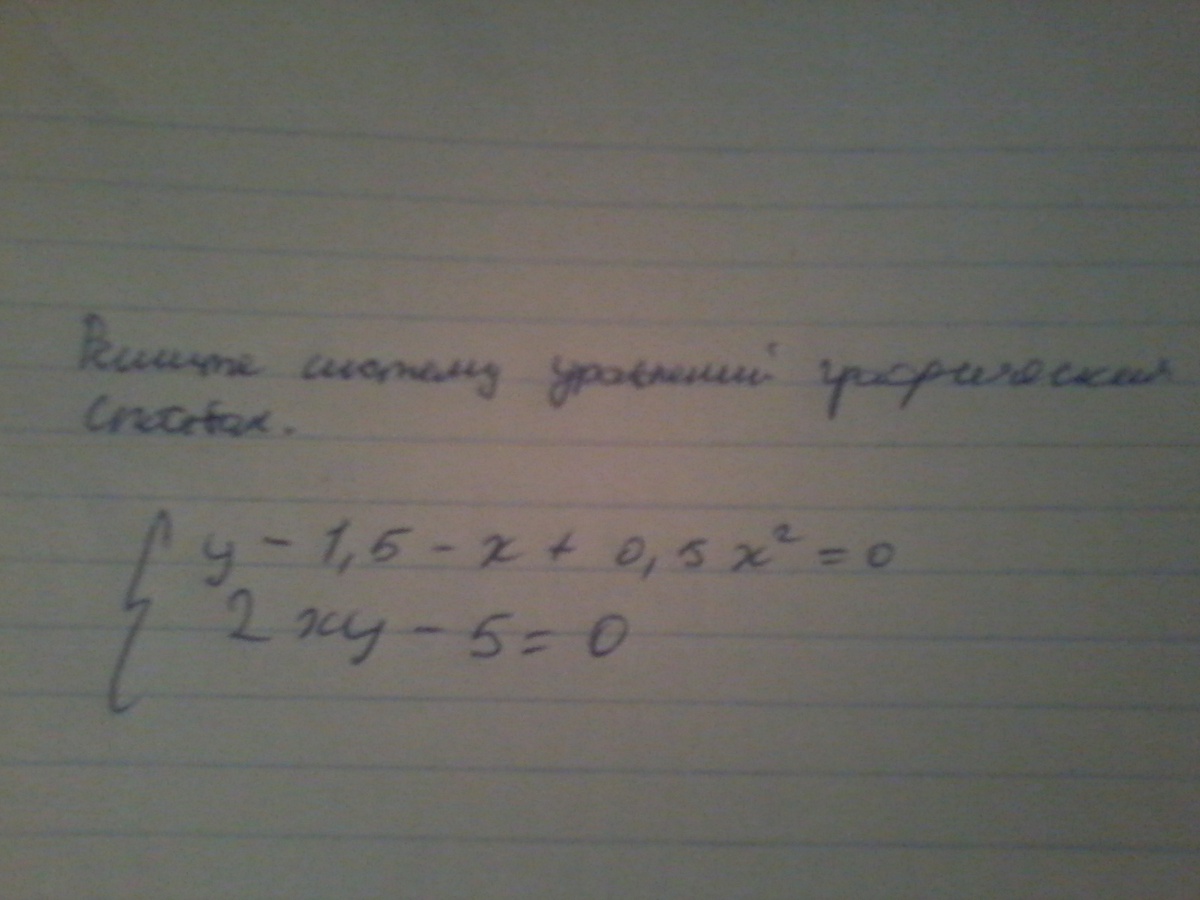 Решите систему уравнений графическим
способом.
y - 1,5 - x + 0,5x² = 0
2xy - 5 = 0